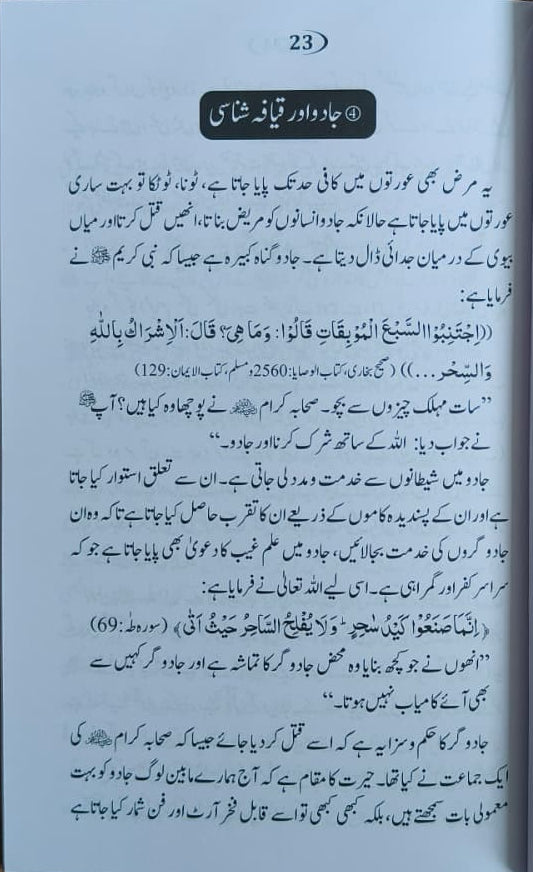 23
④ جادو اور قیافہ شناسی
یہ مرض بھی عورتوں میں کافی حد تک پایا جاتا ہے، ٹونا، ٹوٹکا تو بہت ساری
عورتوں میں پایا جاتا ہے حالانکہ جادو انسانوں کو مریض بناتا، انھیں قتل کرتا اور میاں
بیوی کے درمیان جدائی ڈال دیتا ہے۔ جادو گناہ کبیرہ ہے جیسا کہ نبی کریم ﷺ نے
فرمایا ہے:
((اِجْتَنِبُوْا السَّبْعَ الْمُوْبِقَاتِ قَالُوْا: وَمَا هِىَ؟ قَالَ: اَلْاِشْرَاكُ بِاللّٰهِ
وَالسِّحْر...)) (صحیح بخاری، کتاب الوصایا: 2560 ومسلم، کتاب الایمان: 129)
”سات مہلک چیزوں سے بچو۔ صحابہ کرام نے پوچھا وہ کیا ہیں؟ آپ ﷺ
نے جواب دیا: اللہ کے ساتھ شرک کرنا اور جادو۔“
جادو میں شیطانوں سے خدمت و مدد لی جاتی ہے۔ ان سے تعلق استوار کیا جاتا
ہے اور ان کے پسندیدہ کاموں کے ذریعے ان کا تقرب حاصل کیا جاتا ہے تاکہ وہ ان
جادو گروں کی خدمت بجا لائیں، جادو میں علم غیب کا دعویٰ بھی پایا جاتا ہے جو کہ
سراسر کفر اور گمراہی ہے۔ اسی لیے اللہ تعالیٰ نے فرمایا ہے:
﴿اِنَّمَا صَنَعُوْا كَيْدُ سٰحِرٍ ؕ وَلَا يُفْلِحُ السَّاحِرُ حَيْثُ اَتٰى﴾ (سورہ طہٰ: 69)
”انھوں نے جو کچھ بنایا وہ محض جادو گر کا تماشہ ہے اور جادو گر کہیں سے
بھی آئے کامیاب نہیں ہوتا۔“
جادو گر کا حکم و سزا یہ ہے کہ اسے قتل کر دیا جائے جیسا کہ صحابہ کرام کی
ایک جماعت نے کیا تھا۔ حیرت کا مقام ہے کہ آج ہمارے مابین لوگ جادو کو بہت
معمولی بات سمجھتے ہیں، بلکہ کبھی کبھی تو اسے قابل فخر آرٹ اور فن شمار کیا جاتا ہے